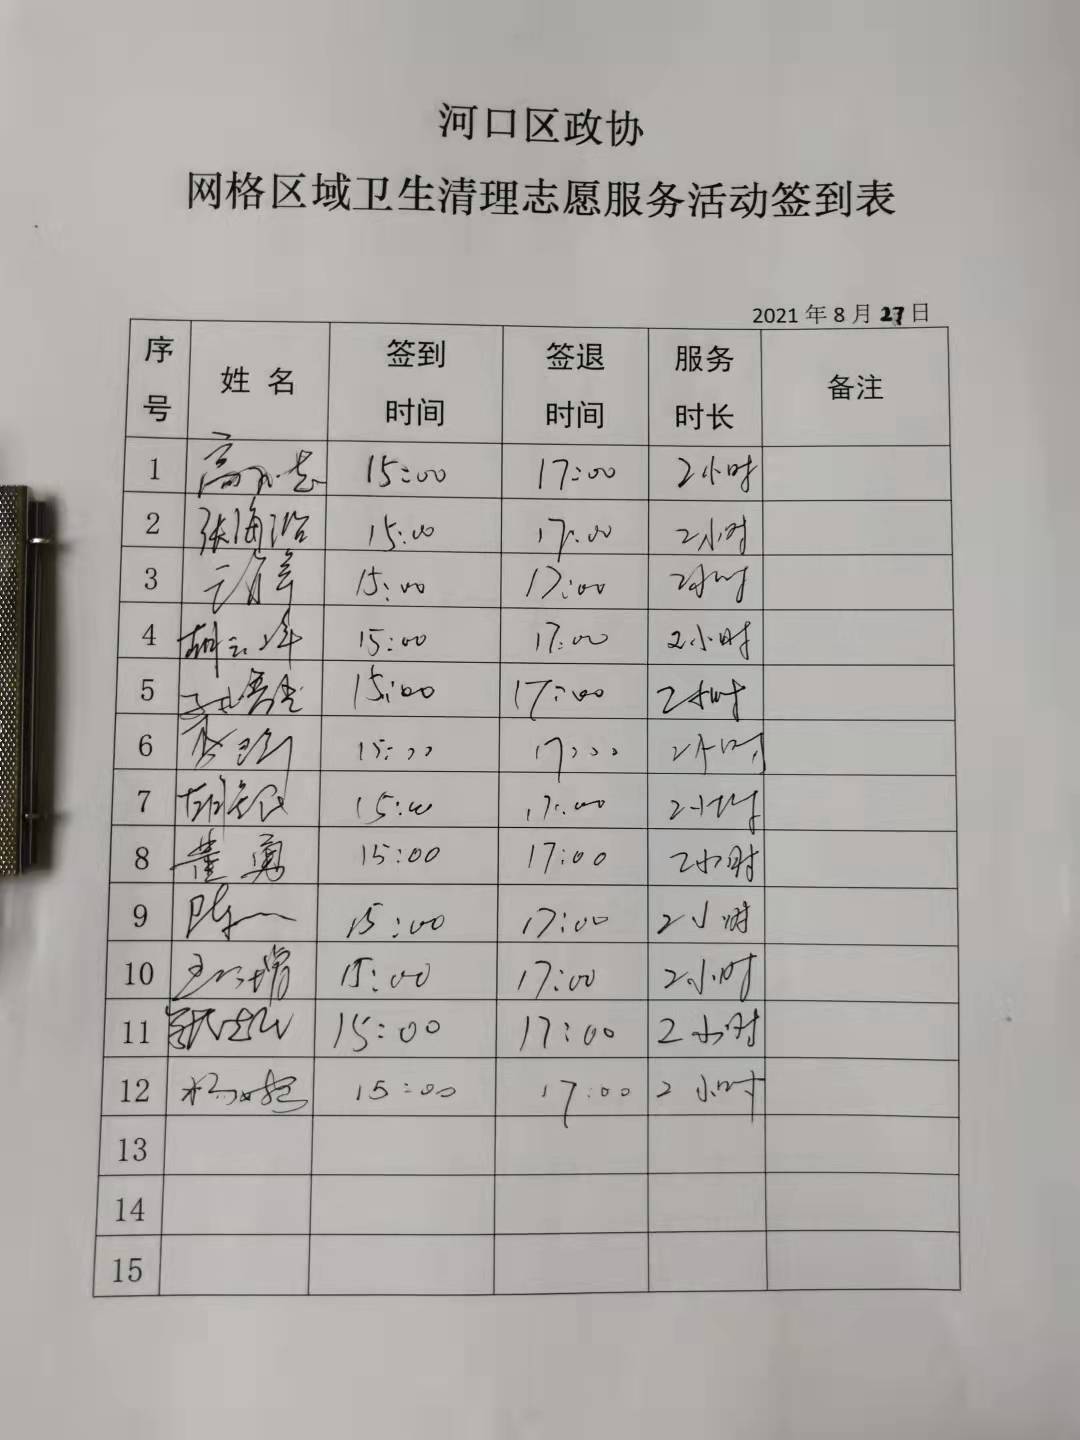 河口区政协
网格区域卫生清理志愿服务活动签到表
2021年8月27日
序号 姓名 签到时间 签退时间 服务时长 备注
1 15:00 17:00 2小时
2 张海滔 15:00 17:00 2小时
3 15:00 17:00 2小时
4 15:00 17:00 2小时
5 15:00 17:00 2小时
6 15:00 17:00 2小时
7 15:00 17:00 2小时
8 董勇 15:00 17:00 2小时
9 陈一 15:00 17:00 2小时
10 15:00 17:00 2小时
11 15:00 17:00 2小时
12 15:00 17:00 2小时
13
14
15